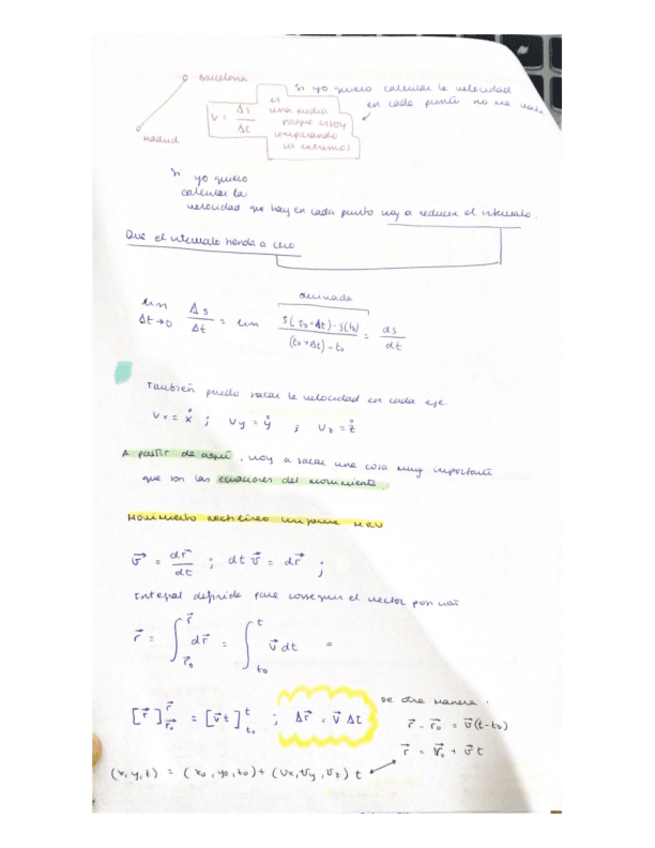 Barcelona
Madrid
V = Δs/Δt
es
una media
porque estoy
comparando
los extremos
Si yo quiero calcular la velocidad
en cada punto no me vale
Si yo quiero
calcular la
velocidad que hay en cada punto voy a reducir el intervalo.
Que el intervalo tienda a cero
derivada
lim Δt→0 Δs/Δt = lim (s(t₀+Δt) - s(t₀))/((t₀+Δt) - t₀) = ds/dt
También puedo sacar la velocidad en cada eje
Vx = ẋ ; Vy = ẏ ; Vz = ż
A partir de aquí, voy a sacar una cosa muy importante
que son las ecuaciones del movimiento.
Movimiento rectilíneo uniforme MRU
v⃗ = dr⃗/dt ; dt v⃗ = dr⃗ ;
Integral definida para conseguir el vector
r⃗ = ∫r⃗₀^r⃗ dr⃗ = ∫t₀^t v⃗ dt =
[r⃗]r⃗₀^r⃗ = [v⃗t]t₀^t ; Δr⃗ = v⃗ Δt
De otra manera:
r⃗ - r⃗₀ = v⃗(t-t₀)
r⃗ = r⃗₀ + v⃗ t
(x, y, z) = (x₀, y₀, z₀) + (Vx, Vy, Vz) t